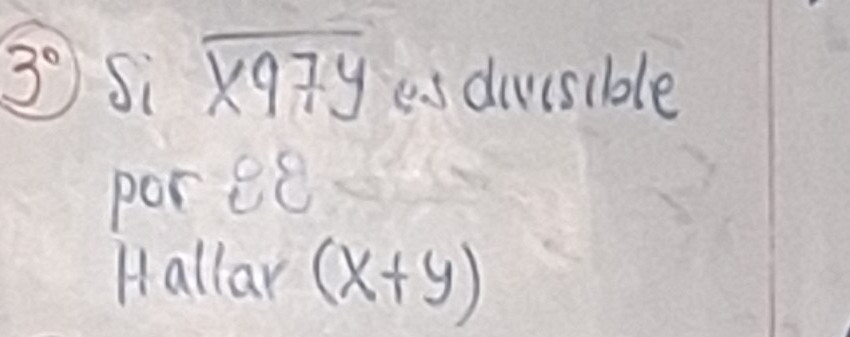 3° Si X97y es divisible
por 88
Hallar (X+y)